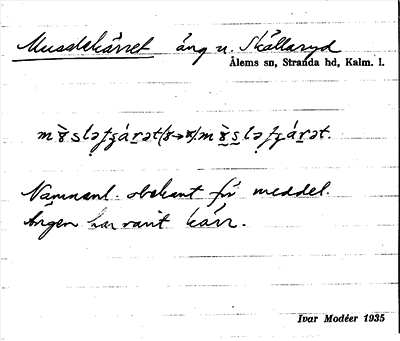 Musslekärret äng u. Skällaryd
Ålems sn, Stranda hd, Kalm. l.
Namnanl. obekant för meddel.
Ängen har varit kärr.
Ivar Modéer 1935